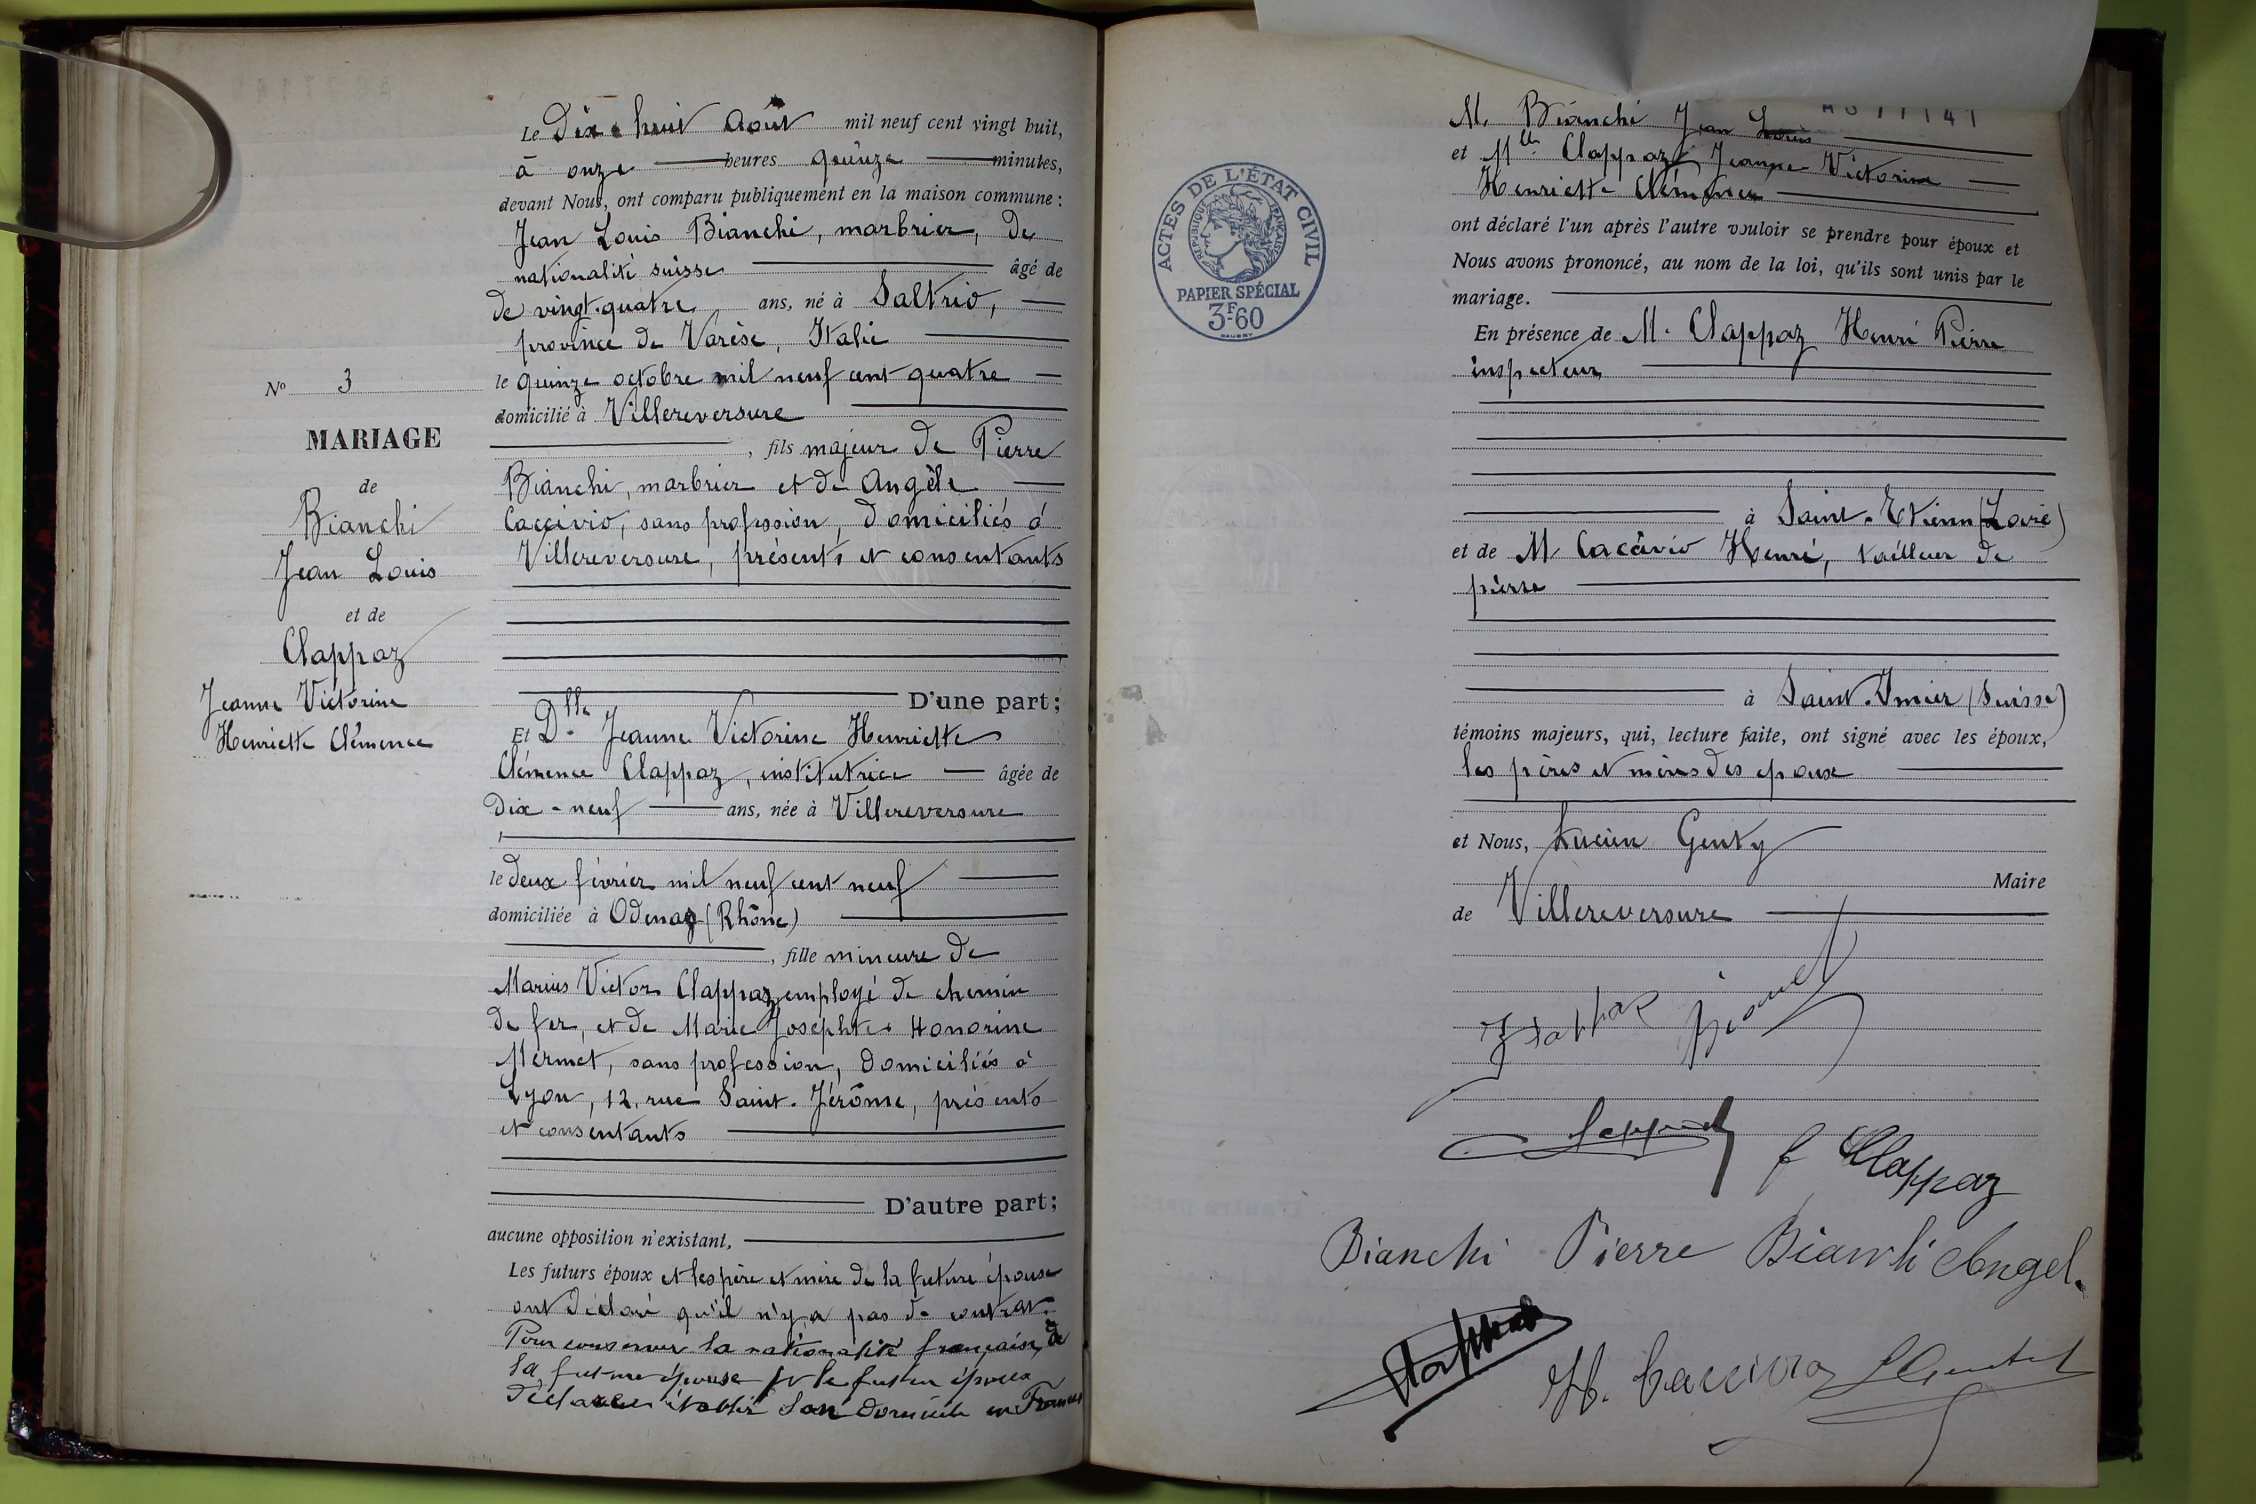 Le Dix-huit Août mil neuf cent vingt huit,
à onze heures quinze minutes,
devant Nous, ont comparu publiquement en la maison commune :
Jean Louis Bianchi, marbrier, de
nationalité suisse âgé de
de vingt-quatre ans, né à Saltrio,
province de Varèse, Italie
le quinze octobre mil neuf cent quatre
domicilié à Villereversure
, fils majeur de Pierre
Bianchi, marbrier et de Angèle
Caccivio, sans profession, domiciliés à
Villereversure, présents et consentants
D'une part ;
Et Dlle Jeanne Victorine Henriette
Clémence Clappaz, institutrice âgée de
dix-neuf ans, née à Villereversure
le deux février mil neuf cent neuf
domiciliée à Odenas (Rhône)
, fille mineure de
Marius Victor Clappaz employé de chemin
de fer, et de Marie Josephte Honorine
Mermet, sans profession, domiciliés à
Lyon, 12, rue Saint-Jérôme, présents
et consentants
D'autre part ;
aucune opposition n'existant,
Les futurs époux et les père et mère de la future épouse
ont déclaré qu'il n'y a pas de contrat.
Pour conserver la nationalité française, de
la future épouse le futur époux
déclare établir son domicile en France
No 3
MARIAGE
de
Bianchi
Jean Louis
et de
Clappaz
Jeanne Victorine
Henriette Clémence
ACTES DE L'ÉTAT CIVIL
RÉPUBLIQUE FRANÇAISE
PAPIER SPÉCIAL
3F.60
M. Bianchi Jean Louis
et Mlle Clappaz Jeanne Victorine
Henriette Clémence
ont déclaré l'un après l'autre vouloir se prendre pour époux et
Nous avons prononcé, au nom de la loi, qu'ils sont unis par le
mariage.
En présence de M. Clappaz Henri Pierre
inspecteur
à Saint-Etienne (Loire)
et de M Caccivio Henri, tailleur de
pierre
à Saint-Imier (Suisse)
témoins majeurs, qui, lecture faite, ont signé avec les époux,
les pères et mères des époux
et Nous, Lucien Genty
Maire
de Villereversure
Clappaz
Bianchi Pierre Bianchi Angel
H. Caccivio